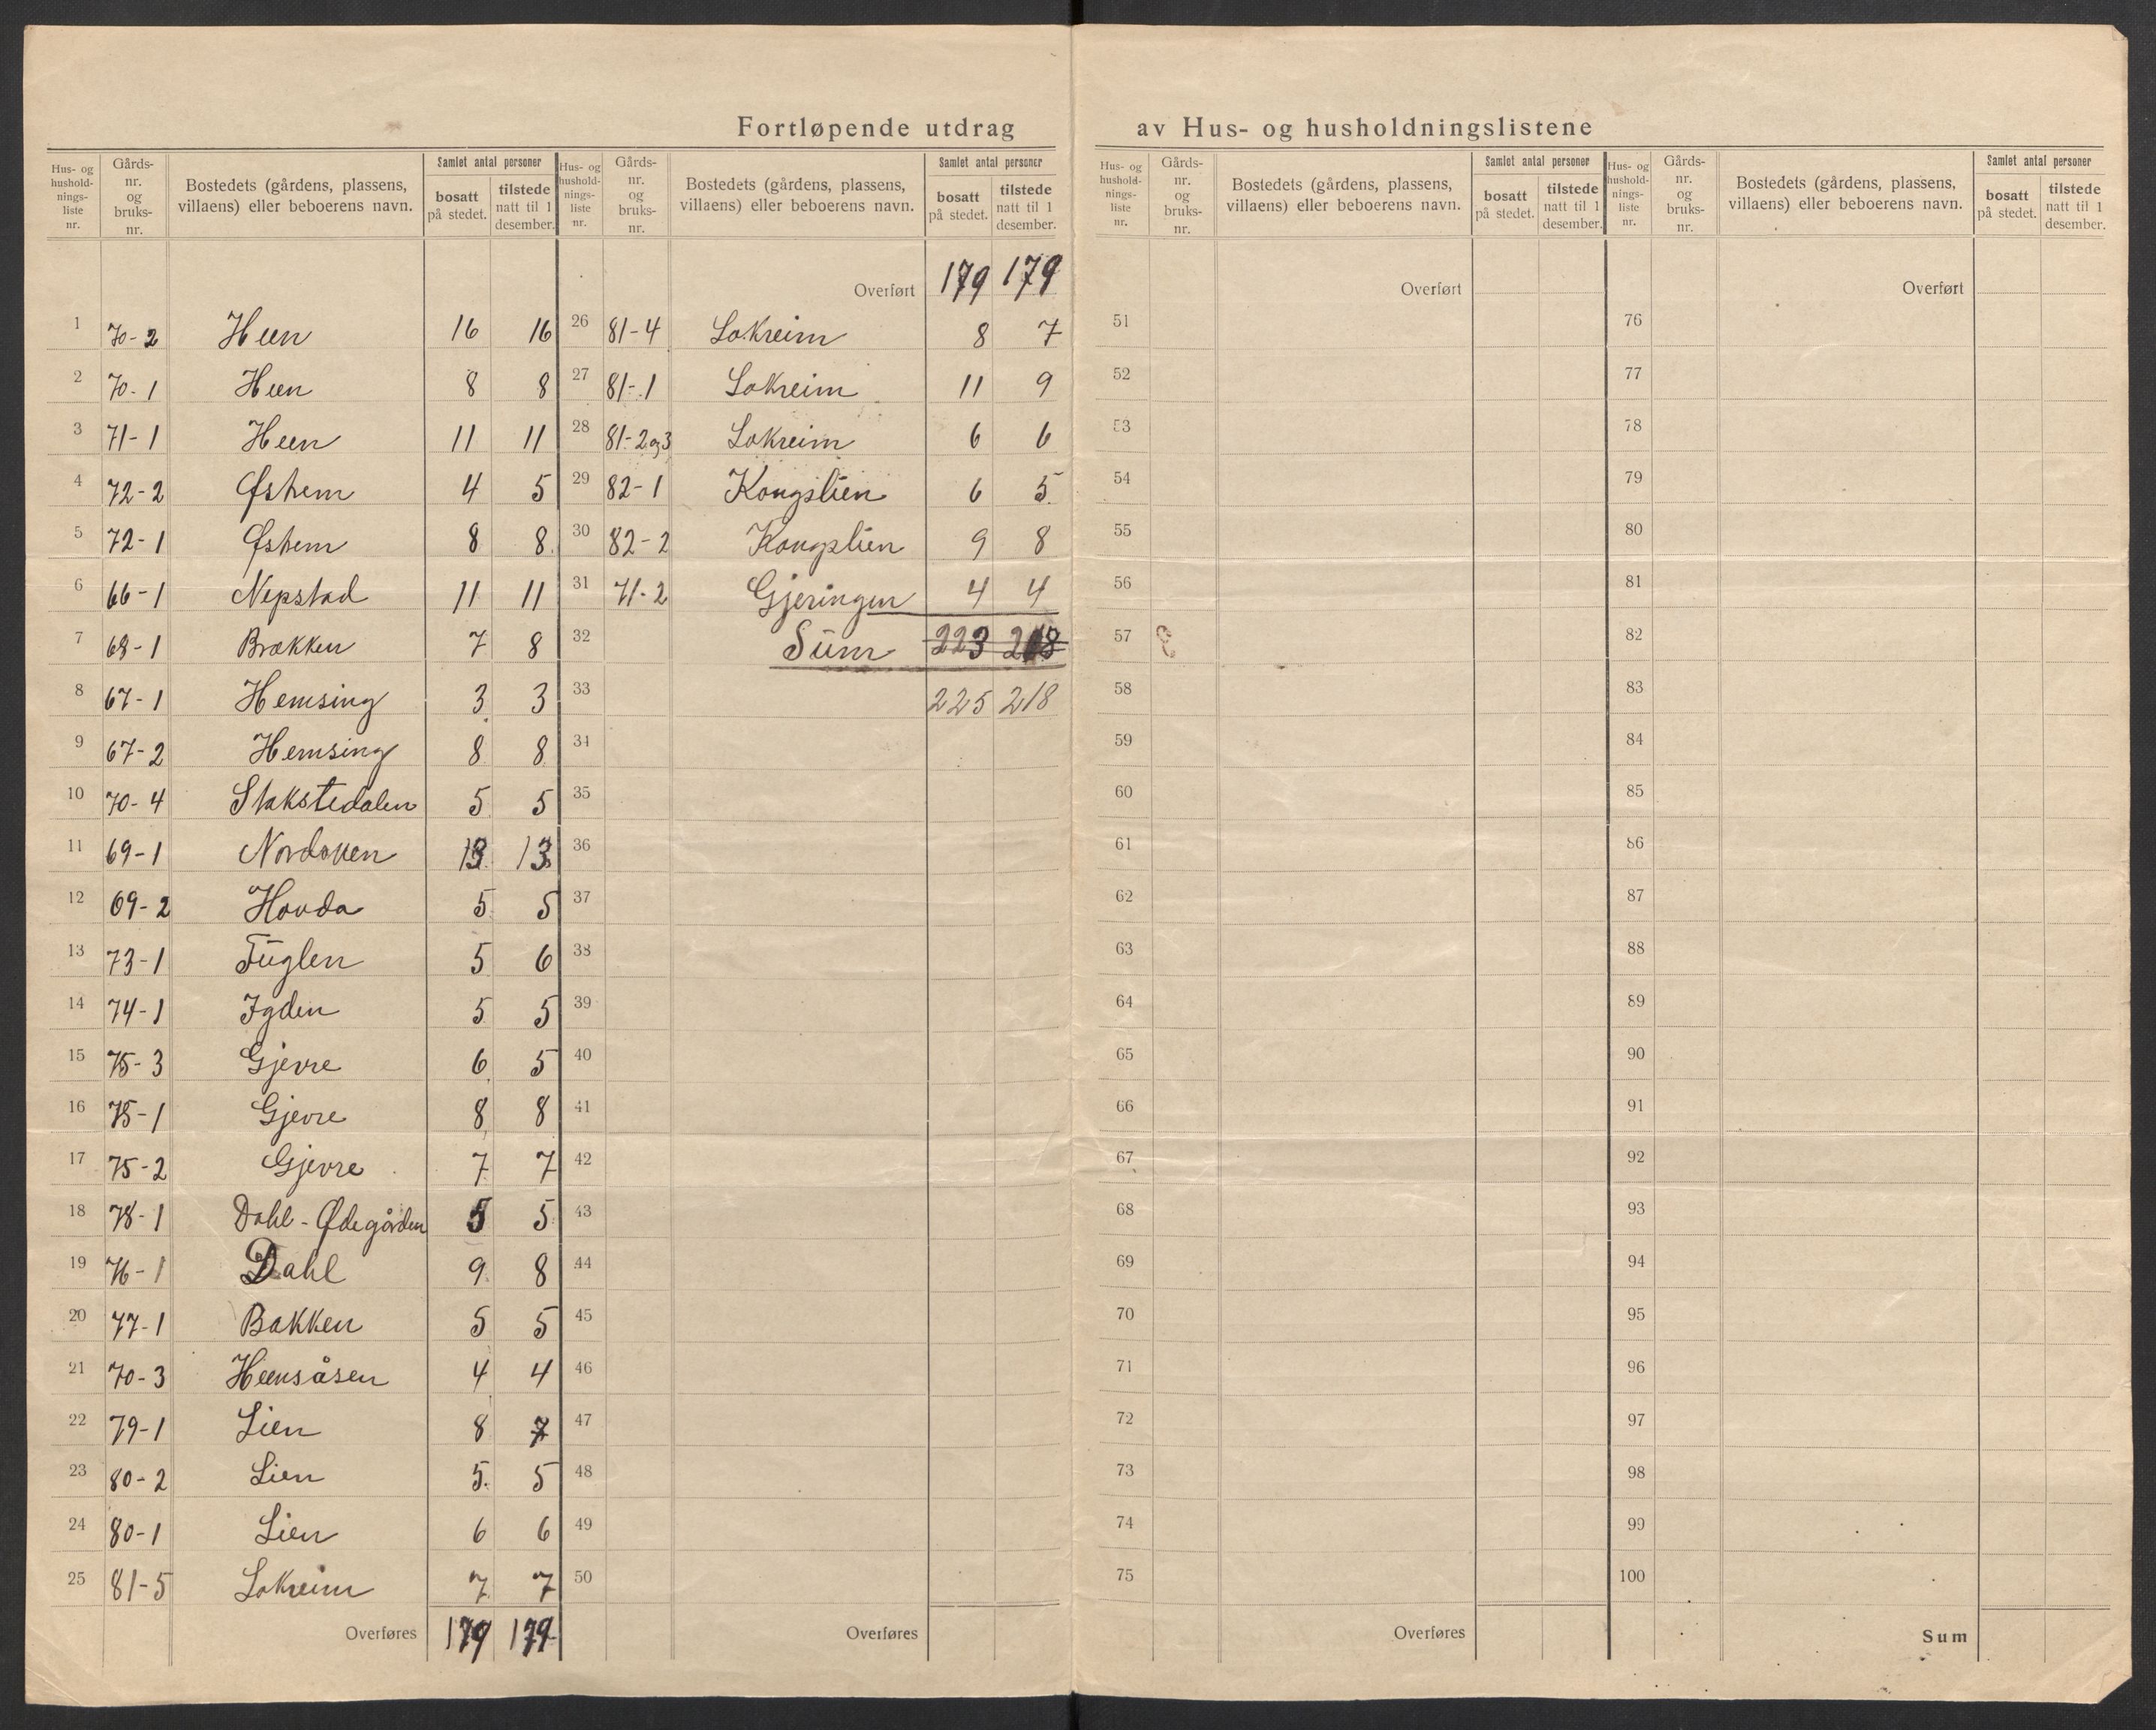 Fortløpende utdrag av Hus- og husholdningslistene
Hus- og hushold-nings-liste nr. | Gårds-nr. og bruks-nr. | Bostedets (gårdens, plassens, villaens) eller beboerens navn. | Samlet antal personer | bosatt på stedet. | tilstede natt til 1 desember.
1 70-2 Heen 16 16
2 70-1 Heen 8 8
3 71-1 Heen 11 11
4 72-2 Øshem 4 5
5 72-1 Øshem 8 8
6 66-1 Nepstad 11 11
7 68-1 Brækken 7 8
8 67-1 Hemsing 3 3
9 67-2 Hemsing 8 8
10 70-4 Stakstedalen 5 5
11 69-1 13 13
12 69-2 Hovda 5 5
13 73-1 Fuglen 5 6
14 74-1 Igden 5 5
15 75-3 Gjevre 6 5
16 75-1 Gjevre 8 8
17 75-2 Gjevre 7 7
18 78-1 Dahl-Ødegården 5 5
19 76-1 Dahl 9 8
20 77-1 Bakken 5 5
21 70-3 Heensåsen 4 4
22 79-1 Lien 8 7
23 80-2 Lien 5 5
24 80-1 Lien 6 6
25 81-5 Lokreim 7 7
Overføres 179 179
Hus- og hushold-nings-liste nr. | Gårds-nr. og bruks-nr. | Bostedets (gårdens, plassens, villaens) eller beboerens navn. | Samlet antal personer | bosatt på stedet. | tilstede natt til 1 desember.
Overført 179 179
26 81-4 Lokreim 8 7
27 81-1 Lokreim 11 9
28 81-2og3 Lokreim 6 6
29 82-1 Kongslien 6 5
30 82-2 Kongslien 9 8
31 71-2 Gjeringen 4 4
32 Sum 223 218
33 225 218
34
35
36
37
38
39
40
41
42
43
44
45
46
47
48
49
50
Overføres
Hus- og hushold-nings-liste nr. | Gårds-nr. og bruks-nr. | Bostedets (gårdens, plassens, villaens) eller beboerens navn. | Samlet antal personer | bosatt på stedet. | tilstede natt til 1 desember.
Overført
51
52
53
54
55
56
57
58
59
60
61
62
63
64
65
66
67
68
69
70
71
72
73
74
75
Overføres
Hus- og hushold-nings-liste nr. | Gårds-nr. og bruks-nr. | Bostedets (gårdens, plassens, villaens) eller beboerens navn. | Samlet antal personer | bosatt på stedet. | tilstede natt til 1 desember.
Overført
76
77
78
79
80
81
82
83
84
85
86
87
88
89
90
91
92
93
94
95
96
97
98
99
100
Sum